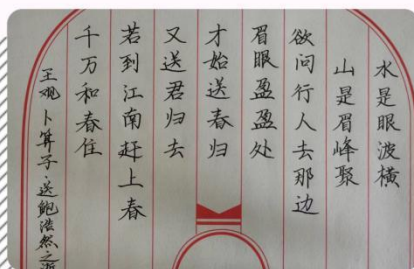 水是眼波横
山是眉峰聚
欲问行人去那边
眉眼盈盈处
才始送春归
又送君归去
若到江南赶上春
千万和春住
王观卜算子·送鲍浩然之浙